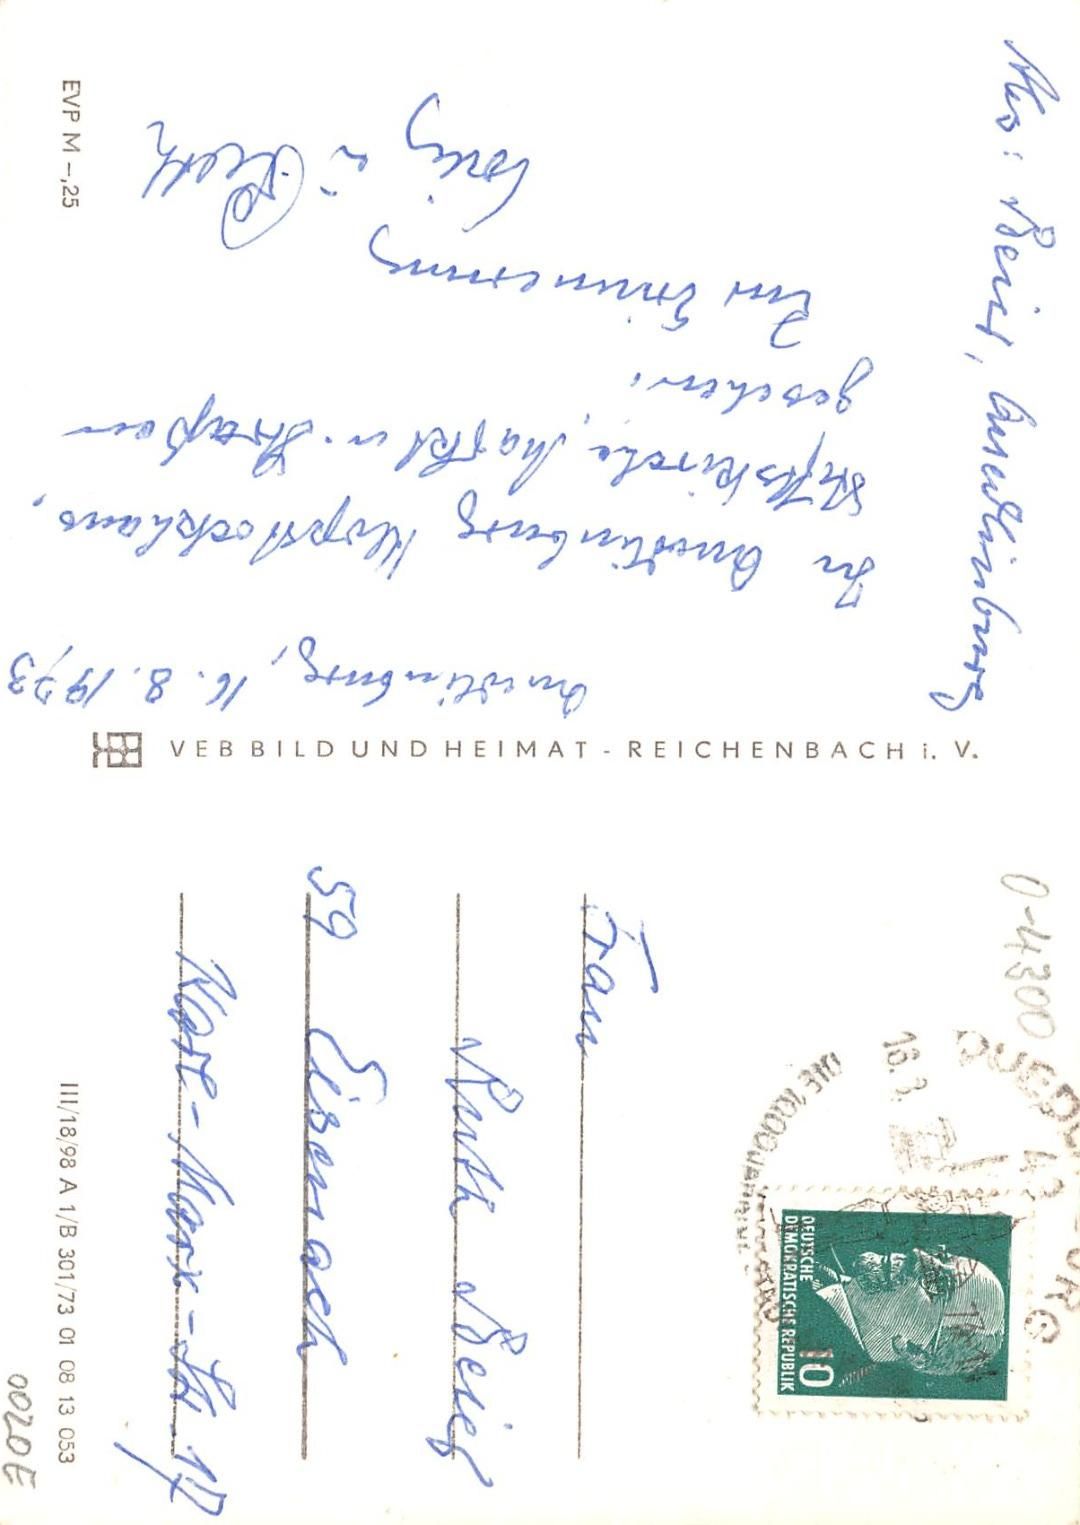 Abs: Beier, Quedlinburg
Quedlinburg, 16. 8. 1973
In Quedlinburg Klopstockhaus,
Stiftskirche, Markt u. Straßen
gesehen.
Zur Erinnerung
u. Ruth
EVP M –,25
VEB BILD UND HEIMAT - REICHENBACH i. V.
0-4300
QUEDLINBURG
DEUTSCHE
DEMOKRATISCHE REPUBLIK
10
Frau
Ruth Beier
59 Eisenach
Karl-Marx-Str. 17
III/18/98 A 1/B 301/73 01 08 13 053
0020E